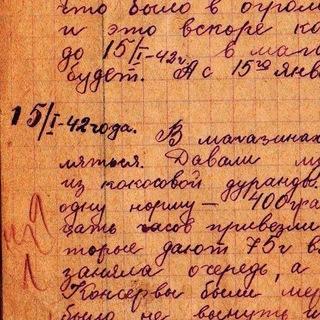 что было в огром
и это вскоре ко
до 15/I-42г. в мага
будет. А с 15го янв
15/I-42 года. В магазинах
мяться. Давали
из кокосовой дуранды.
одну норму — 400гра
цать часов привезли
торые дают 75г в
заняла очередь, а
Консервы были мер
было не воткнуть